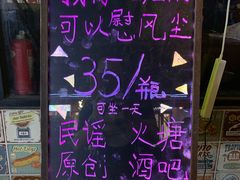 可以慰风尘
35/瓶
可坐一天
民谣 火塘
原创 酒吧